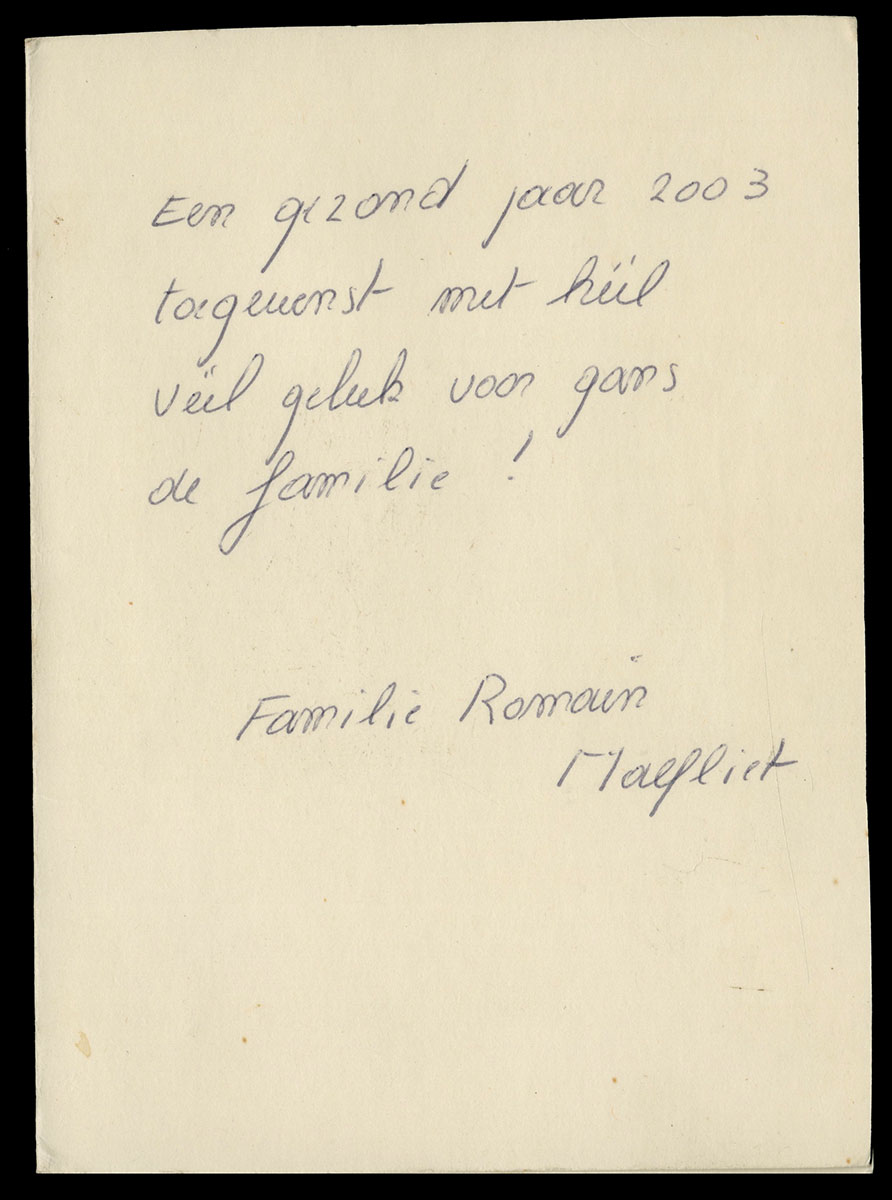 Een gezond jaar 2003
toegewenst met héél
véél geluk voor gans
de familie !
Familie Romain
Maefliet